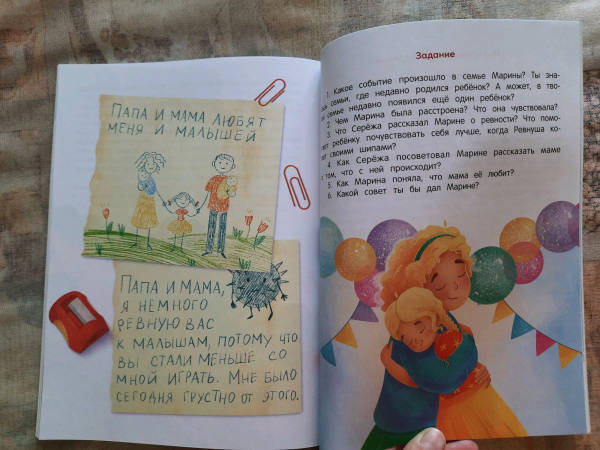 Папа и мама любят
меня и малышей
Папа и мама,
я немного
ревную вас
к малышам, потому что
вы стали меньше со
мной играть. Мне было
сегодня грустно от этого.
Задание
1. Какое событие произошло в семье Марины? Ты зна-
семьи, где недавно родился ребёнок? А может, в тво-
семье недавно появился ещё один ребёнок?
2. Чем Марина была расстроена? Что она чувствовала?
3. Что Серёжа рассказал Марине о ревности? Что помо-
ребёнку почувствовать себя лучше, когда Ревнуша ко-
своими шипами?
4. Как Серёжа посоветовал Марине рассказать маме
том, что с ней происходит?
5. Как Марина поняла, что мама её любит?
6. Какой совет ты бы дал Марине?